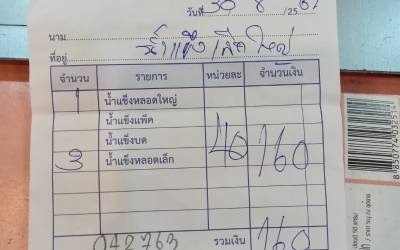 วันที่ 30 / 8 / 2567
นาม
ที่อยู่ น้ำแข็ง เกล็ดใหญ่
จำนวน รายการ หน่วยละ จำนวนเงิน
1 น้ำแข็งหลอดใหญ่
น้ำแข็งแพ็ค
น้ำแข็งบด
3 น้ำแข็งหลอดเล็ก 40 160
042763 รวมเงิน 160
8 850774 032514